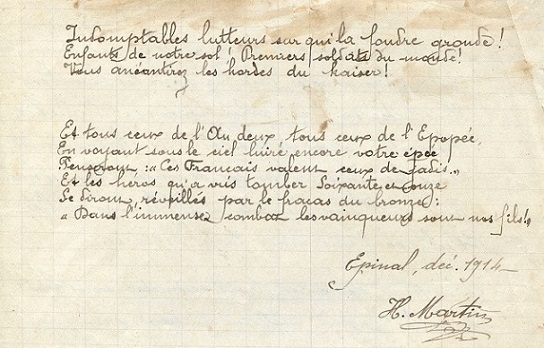 Indomptables lutteurs sur qui la foudre gronde !
Enfants de notre sol ! Premiers soldats du monde !
Vous anéantirez les hordes du kaiser !
Et tous ceux de l'An deux, tous ceux de l'Epopée,
En voyant sous le ciel luire encore votre épée
Penseront : « Ces Français valent ceux de jadis. »
Et les héros qu'a vus tomber Soixante et onze
Se diront, réveillés par le fracas du bronze :
« Dans l'immense combat les vainqueurs sont nos fils ! »
Epinal, déc. 1914
H. Martin